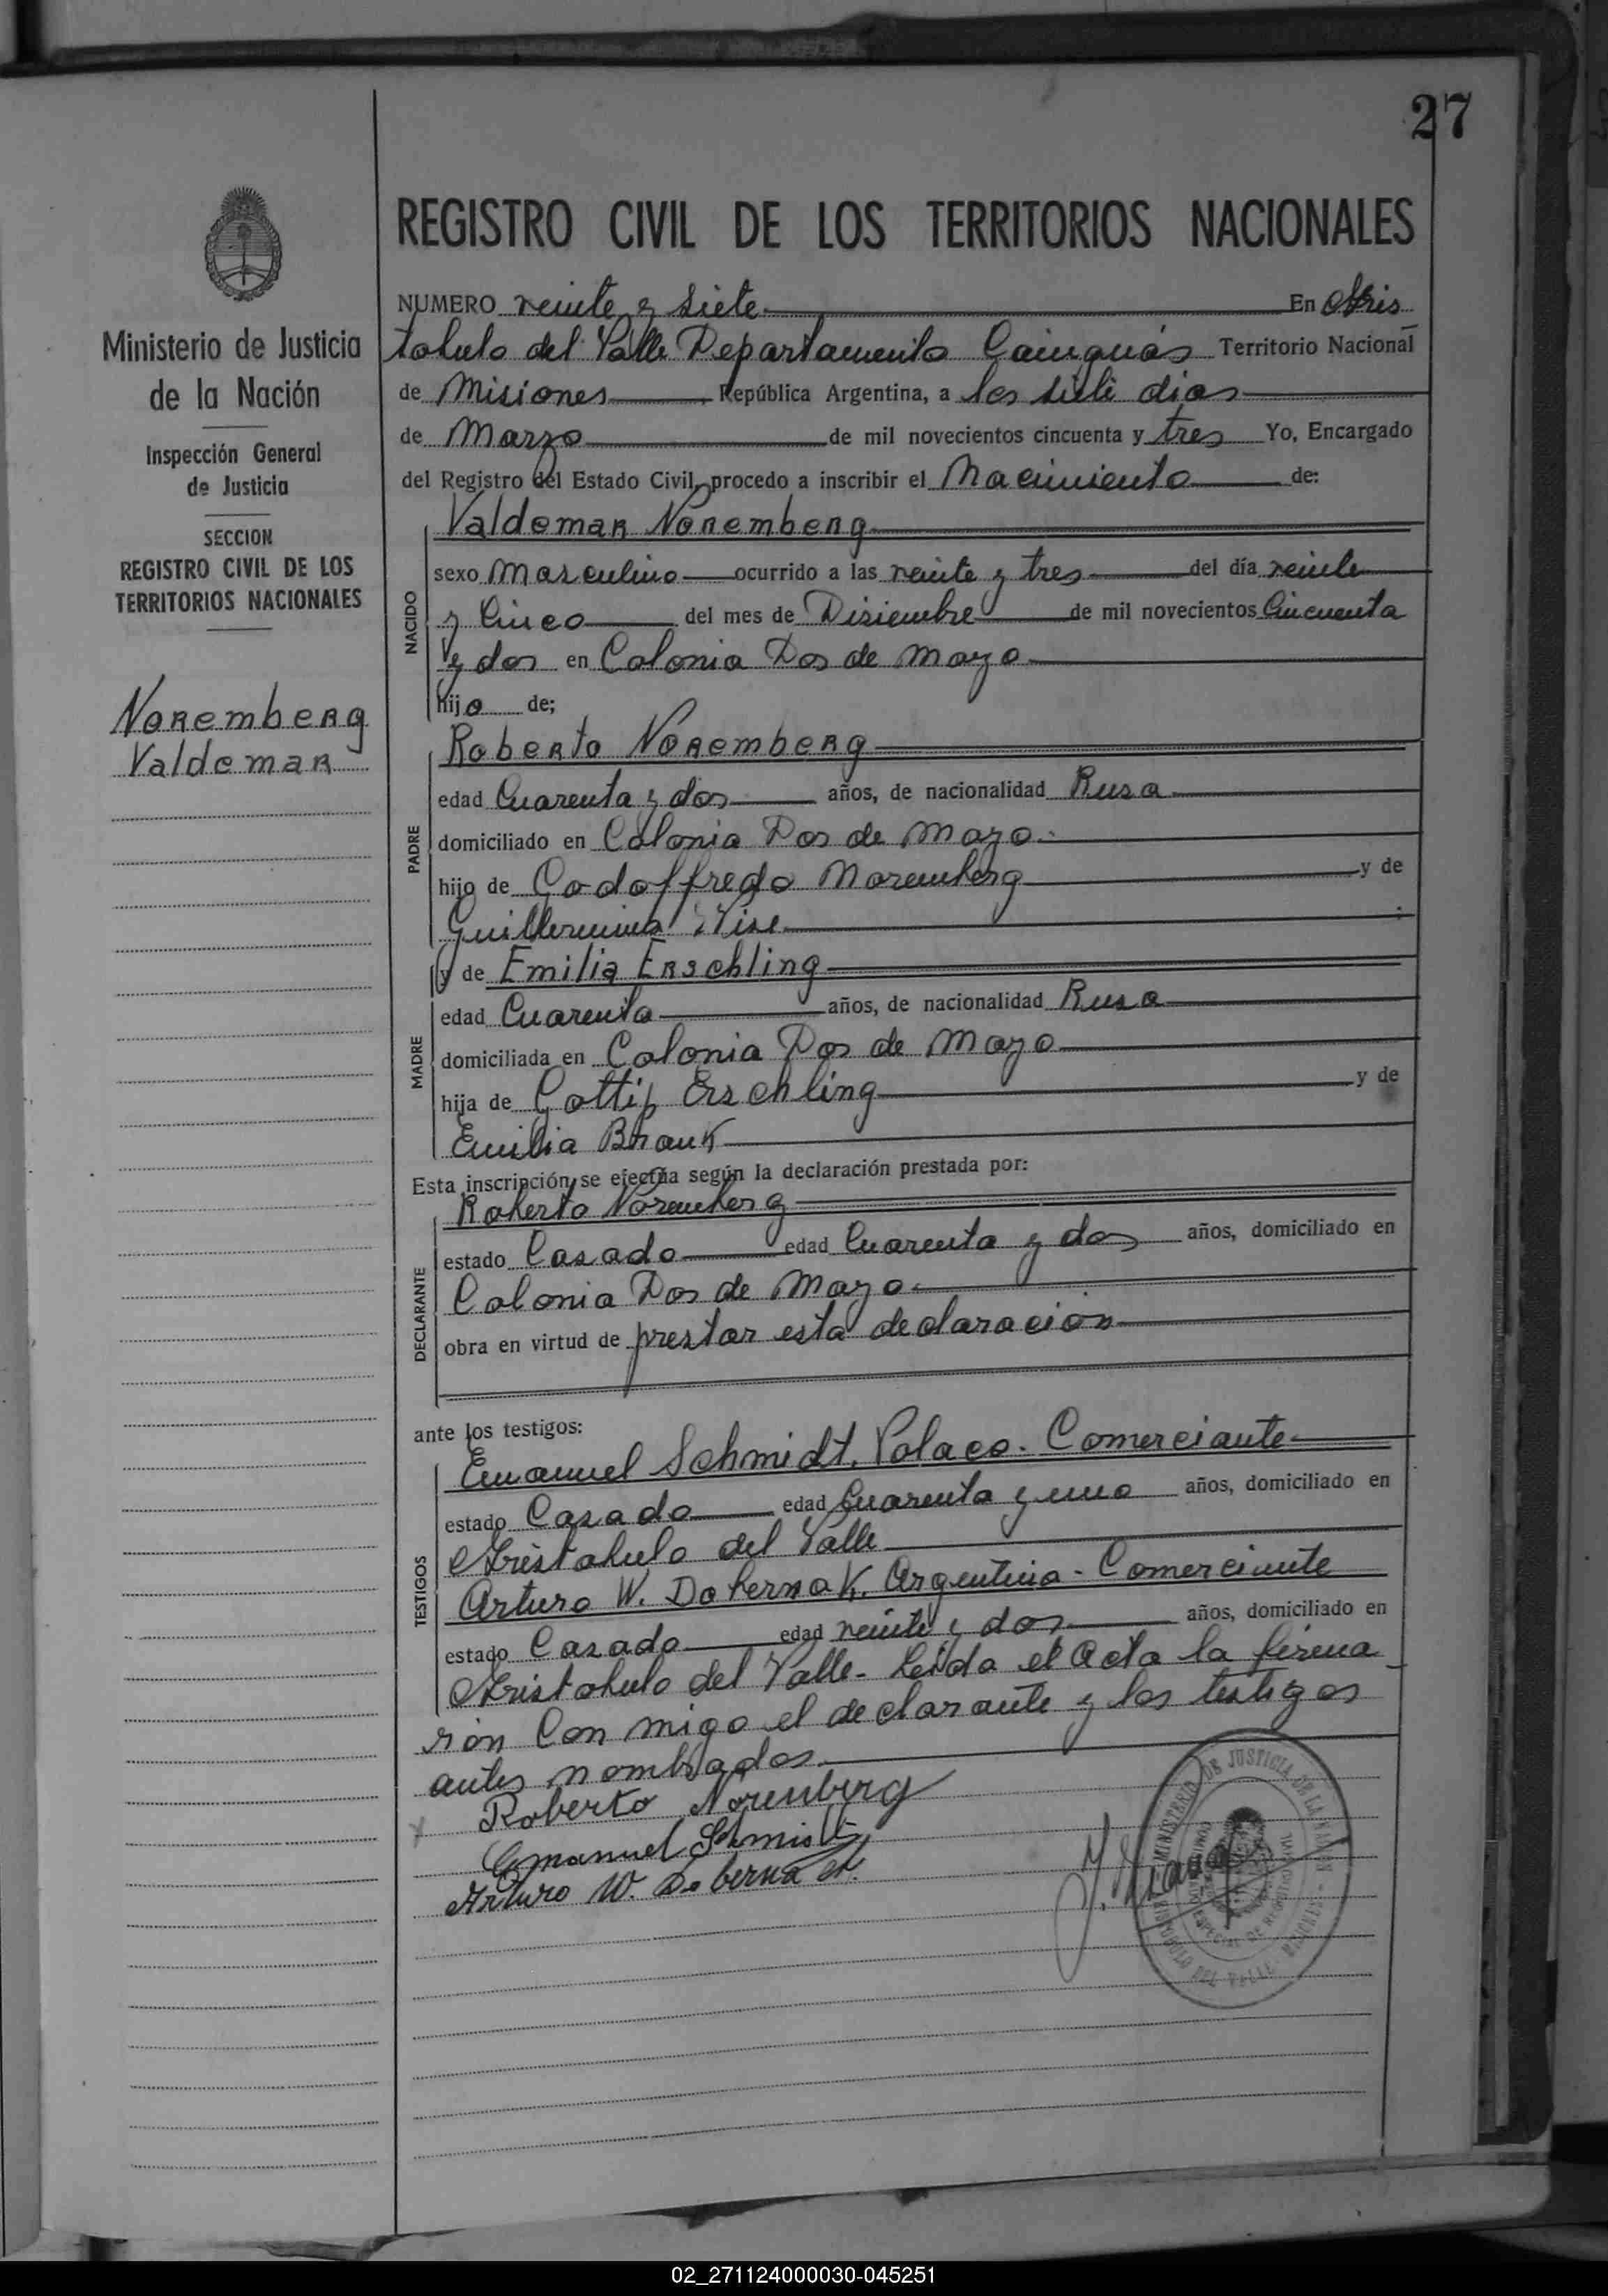 27
REGISTRO CIVIL DE LOS TERRITORIOS NACIONALES
Ministerio de Justicia
de la Nación
Inspección General
de Justicia
SECCION
REGISTRO CIVIL DE LOS
TERRITORIOS NACIONALES
Noremberg
Valdemar
NUMERO veinte y siete En Aris
tobulo del Valle Departamento Cainguás Territorio Nacional
de Misiones República Argentina, a los siete dias
de Marzo de mil novecientos cincuenta y tres Yo, Encargado
del Registro del Estado Civil, procedo a inscribir el Nacimiento de:
NACIDO
Valdemar Noremberg
sexo Masculino ocurrido a las veinte y tres del día veinte
y Cinco del mes de Disiembre de mil novecientos Cincuenta
y dos en Colonia Dos de Mayo
hijo de;
PADRE
Roberto Noremberg
edad Cuarenta y dos años, de nacionalidad Rusa
domiciliado en Colonia Dos de Mayo
hijo de Godoffredo Noremberg y de
Guillermina
y de Emilia Erschling
MADRE
edad Cuarenta años, de nacionalidad Rusa
domiciliada en Colonia Dos de Mayo
hija de Gottip Erschling y de
Emilia Brauk
Esta inscripción se efectúa según la declaración prestada por:
DECLARANTE
Roberto Noremberg
estado Casado edad Cuarenta y dos años, domiciliado en
Colonia Dos de Mayo
obra en virtud de prestar esta declaración
ante los testigos:
TESTIGOS
Emanuel Schmidt. Polaco. Comerciante
estado Casado edad Cuarenta y uno años, domiciliado en
Aristobulo del Valle
Arturo W. Dobernak. Argentino - Comerciante
estado Casado edad veinte y dos años, domiciliado en
Aristobulo del Valle - Leida el Acta la firma
ron Con migo el declarante y los testigos
antes nombrados
Roberto Norenberg
Emanuel Schmidt
Arturo W. Dobernak.
MINISTERIO DE JUSTICIA DE LA NACION
ARISTOBULO DEL VALLE - MISIONES
02_271124000030-045251